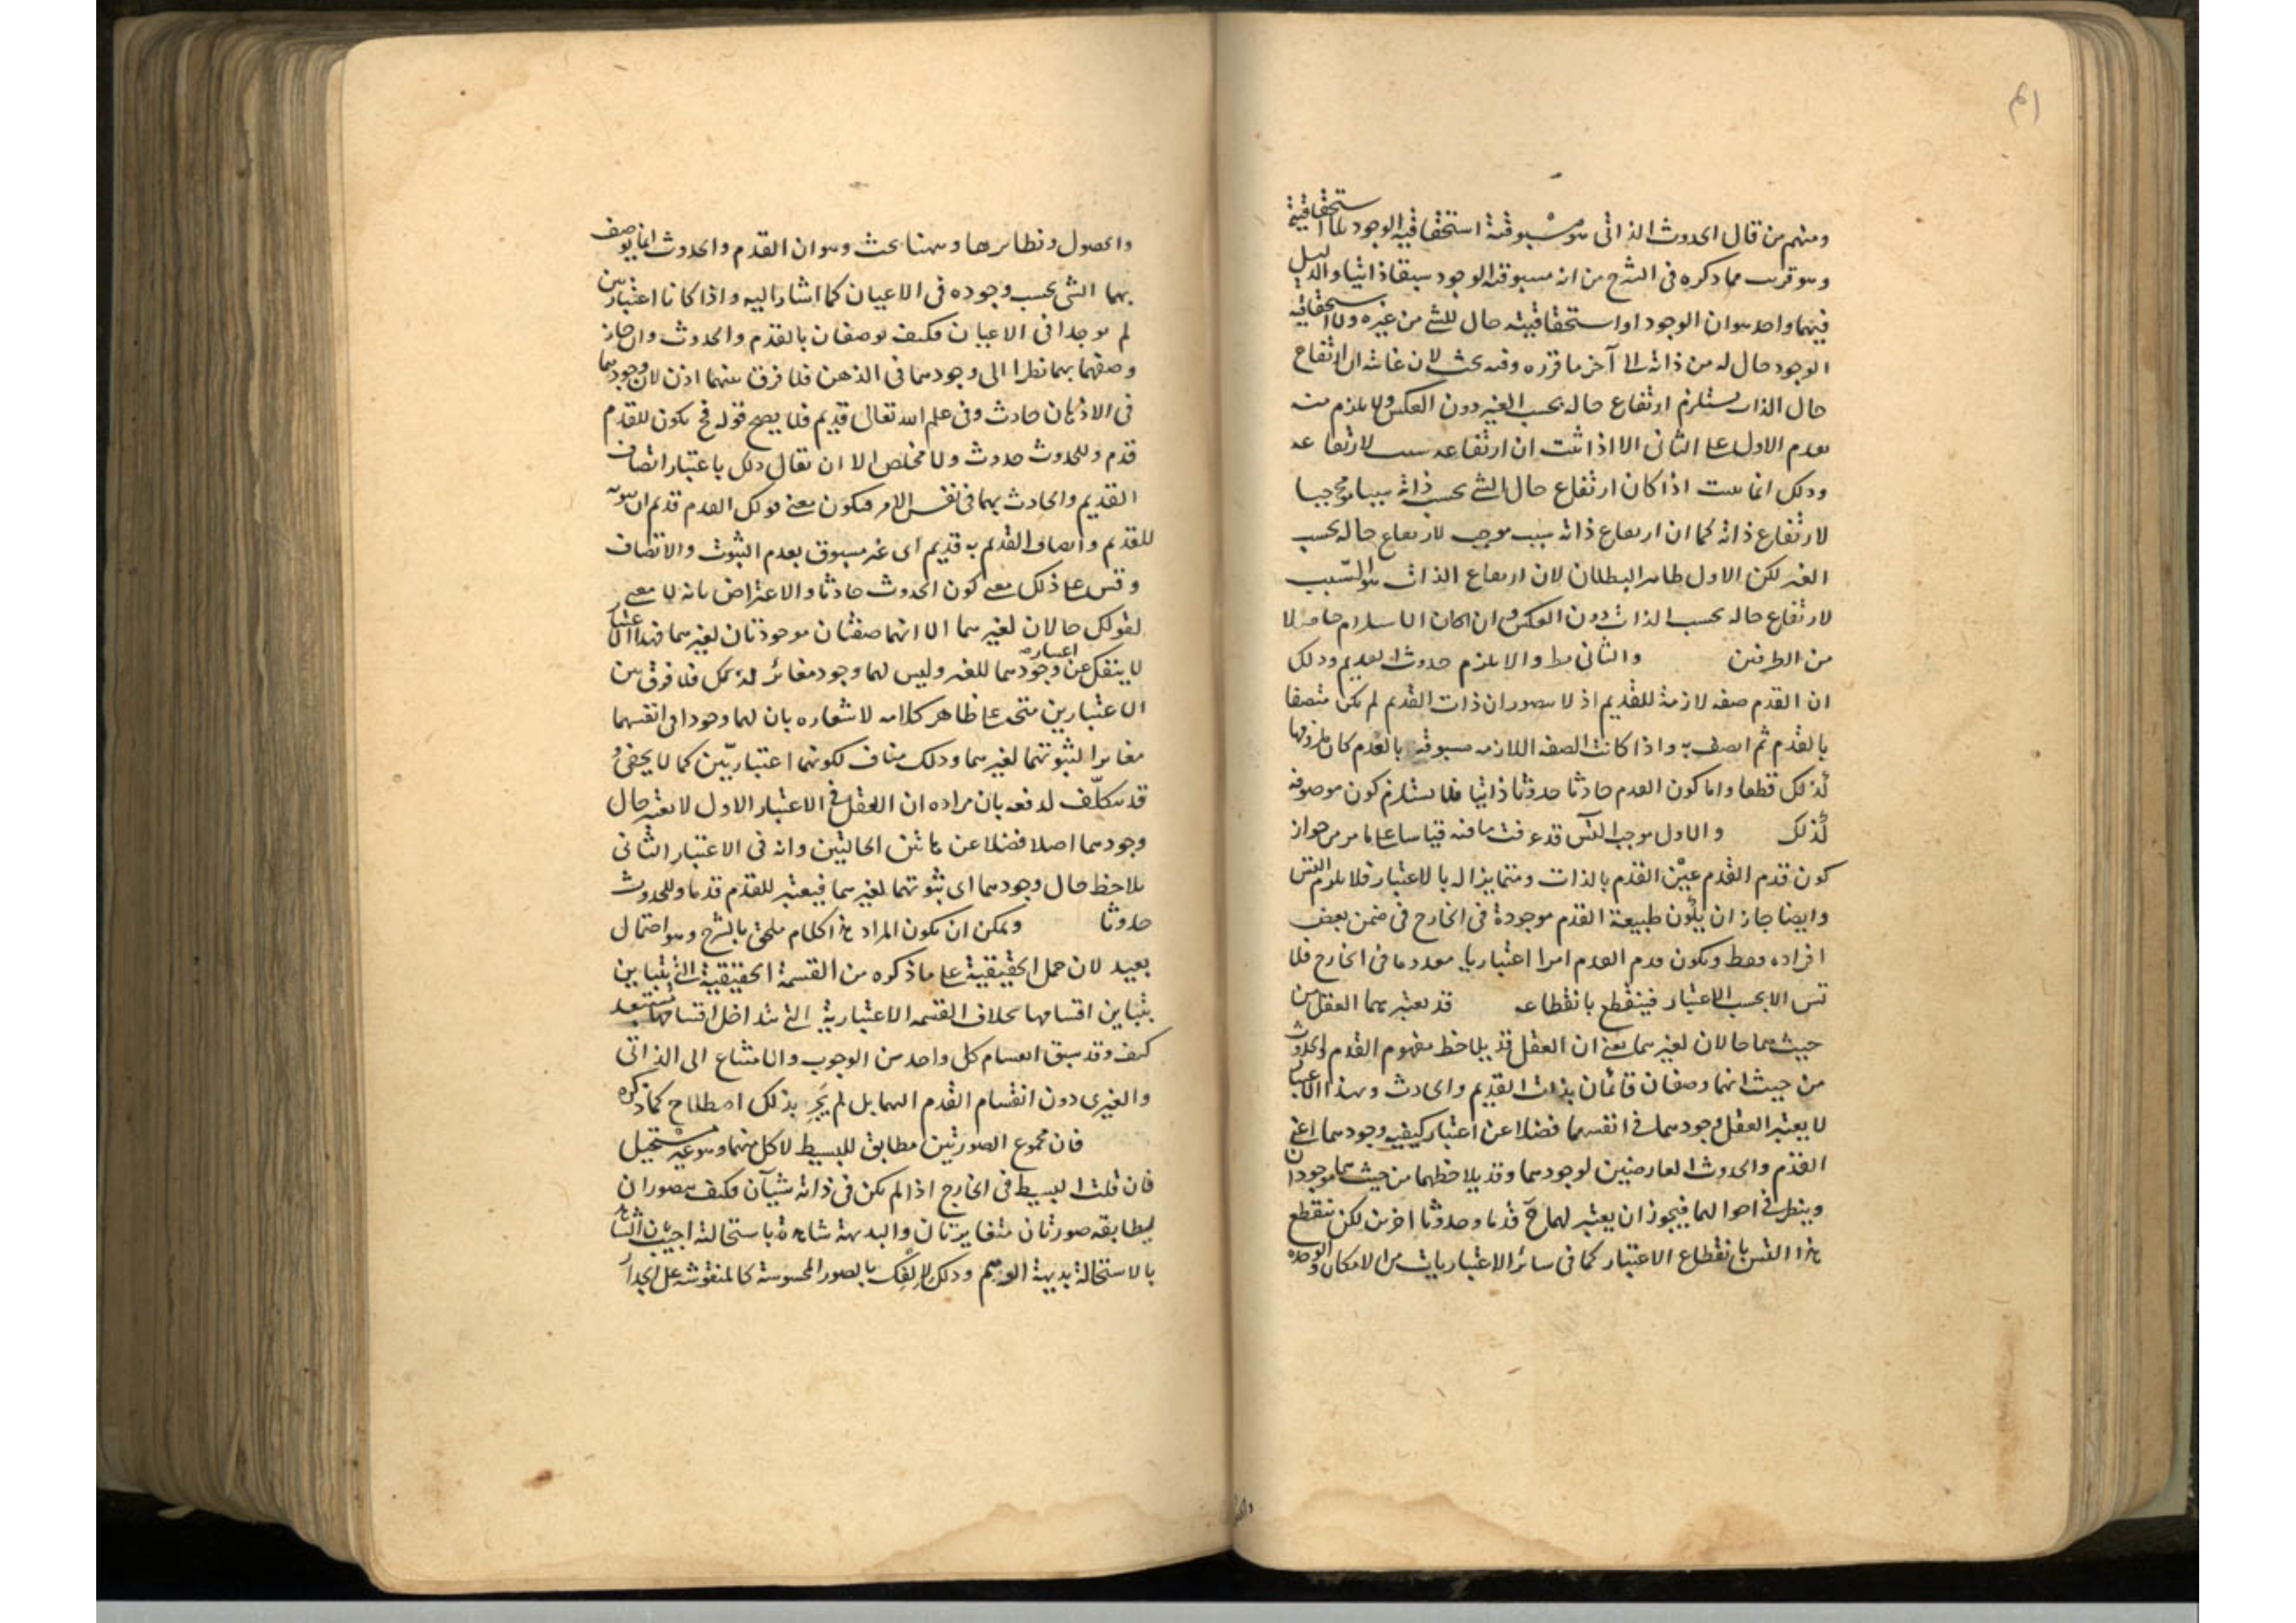 ومنهم من قال الحدوث الذاتى هو مسبوقية استحقاقية الوجود بلا استحقاقية
وهو قريب مما ذكره فى الشرح من انه مسبوقية الوجود سبقا ذاتيا والدليل
فيهما واحد هو ان الوجود او استحقاقيته حال للشئ من غيره ولا استحقاقية
الوجود حال له من ذاته الى آخر ما قرره وفيه بحث لان غايته ان ارتفاع
حال الذات يستلزم ارتفاع حاله بحسب الغير دون العكس ولا يلزم منه
تقدم الاول على الثانى الا اذا ثبت ان ارتفاعه سبب لارتفاعه
وذلك انما يثبت اذا كان ارتفاع حال الشئ بحسب ذاته سببا موجبا
لارتفاع ذاته كما ان ارتفاع ذاته سبب موجب لارتفاع حاله بحسب
الغير لكن الاول ظاهر البطلان لان ارتفاع الذات هو السبب
لارتفاع حاله بحسب الذات دون العكس وان كان الاستلزام حاصلا
من الطرفين والثانى بط والا يلزم حدوث القديم وذلك
ان القدم صفة لازمة للقديم اذ لا يتصور ان ذات القديم لم يكن متصفا
بالقدم ثم اتصف به واذا كانت الصفة اللازمة مسبوقة بالعدم كان ملزوفها
كذلك قطعا واما كون القدم حادثا حدوثا ذاتيا فلا يستلزم كون موصوفه
كذلك والاول موجب التس قد عرفت ما فيه قياسا على ما مر من جواز
كون قدم القدم عين القدم بالذات ومتمايزا له بالاعتبار فلا يلزم التس
وايضا جاز ان يكون طبيعة القدم موجودة فى الخارج فى ضمن بعض
افراده فقط ويكون قدم القدم امرا اعتباريا معدوما فى الخارج فلا
تس الا بحسب الاعتبار فينقطع بانقطاعه قد يعتبرهما العقل من
حيث هما حالان لغيرهما يعنى ان العقل قد يلاحظ مفهوم القدم والحدوث
من حيث انهما وصفان قائمان بذات القديم والحادث وبهذا الاعتبار
لا يعتبر العقل وجودهما فى انفسهما فضلا عن اعتبار كيفية وجودهما اعنى
القدم والحدوث العارضين لوجودهما وقد يلاحظهما من حيث هما موجودان
وينظر فى احوالهما فيجوز ان يعتبر لهما ح قدما وحدوثا اخرين لكن ينقطع
هذا التس بانقطاع الاعتبار كما فى سائر الاعتباريات من الامكان والوحدة
والحصول ونظائرها وههنا بحث وهو ان القدم والحدوث انما يوصف
بهما الشئ بحسب وجوده فى الاعيان كما اشار اليه واذا كانا اعتباريين
لم يوجدا فى الاعيان فكيف يوصفان بالقدم والحدوث وان جاز
وصفهما بهما نظرا الى وجودهما فى الذهن فلا فرق بينهما اذن لان وجودهما
فى الاذهان حادث وفى علم الله تعالى قديم فلا يصح قوله فح يكون للقدم
قدم وللحدوث حدوث ولا مخلص الا ان يقال ذلك باعتبار اتصاف
القديم والحادث بهما فى نفس الامر فيكون معنى قولك القدم قديم ان ثبوته
للقديم واتصاف القديم به قديم اى غير مسبوق بعدم الثبوت والاتصاف
وقس على ذلك معنى كون الحدوث حادثا والاعتراض بانه لا معنى
لقولك حالان لغيرهما الا انهما صفتان موجودتان لغيرهما فهذا الاعتبار
لا ينفك عن اعتبار وجودهما للغير وليس لهما وجود مغائر لذلك فلا فرق بين
الاعتبارين متجه على ظاهر كلامه لاشعاره بان لهما وجودا فى انفسهما
مغايرا لثبوتهما لغيرهما وذلك مناف لكونهما اعتباريين كما لا يخفى و
قد يتكلف لدفعه بان مراده ان العقل فى الاعتبار الاول لا يعتبر حال
وجودهما اصلا فضلا عن هاتين الحالتين وانه فى الاعتبار الثانى
يلاحظ حال وجودهما اى ثبوتهما لغيرهما فيعتبر للقدم قدما وللحدوث
حدوثا ويمكن ان يكون المراد هذا كلام ملحق بالشرح وهو احتمال
بعيد لان حمل الحقيقية على ما ذكره من القسمة الحقيقية التى يتباين
يتباين اقسامها بخلاف القسمة الاعتبارية التى تتداخل اقسامها مستبعد
كيف وقد سبق انقسام كل واحد من الوجوب والامتناع الى الذاتى
والغيرى دون انقسام القدم اليهما بل لم يجر بذلك اصطلاح كما ذكره
فان مجموع الصورتين مطابق للبسيط لا كل منهما وهو غير مستحيل
فان قلت البسيط فى الخارج اذا لم يكن فى ذاته شيآن فكيف يتصور ان
يطابقه صورتان متغايرتان والبديهة شاهدة باستحالته اجيب بان الشاهد
بالاستحالة بديهة الوهم وذلك لالفك بالصور المحسوسة كالمنقوشة على الجدار